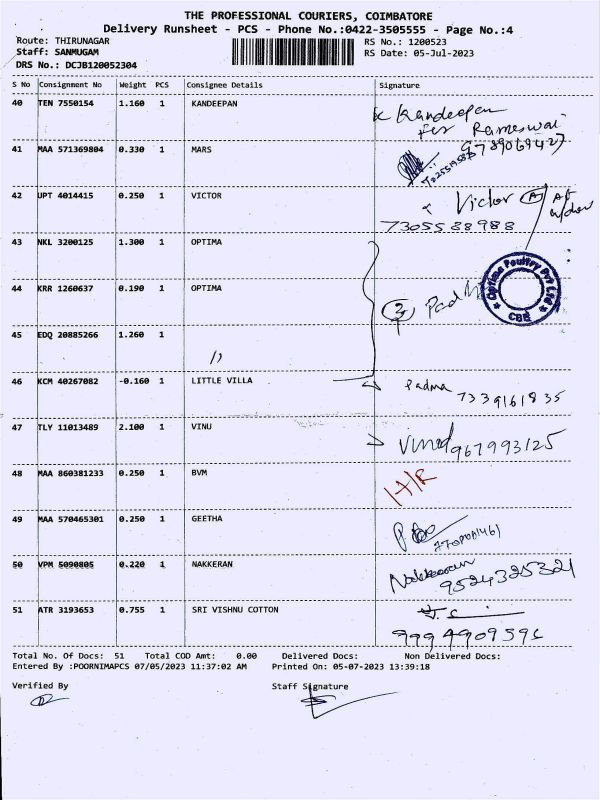 THE PROFESSIONAL COURIERS, COIMBATORE
Delivery Runsheet - PCS - Phone No.:0422-3505555 - Page No.:4
Route: THIRUNAGAR RS No.: 1200523
Staff: SANMUGAM RS Date: 05-Jul-2023
DRS No.: DCJB120052304
S No Consignment No Weight PCS Consignee Details Signature
40 TEN 7550154 1.160 1 KANDEEPAN Kandeepan
for Rameswar
9789069427
41 MAA 571369804 0.330 1 MARS
42 UPT 4014415 0.250 1 VICTOR Victor
7305588988
43 NKL 3200125 1.300 1 OPTIMA
44 KRR 1260637 0.190 1 OPTIMA 3 Padma
Optima Poultry Pvt Ltd
CBE
45 EDQ 20885266 1.260 1
46 KCM 40267082 -0.160 1 LITTLE VILLA Padma
7339161835
47 TLY 11013489 2.100 1 VINU Vinod 967993125
48 MAA 860381233 0.250 1 BVM
49 MAA 570465301 0.250 1 GEETHA
50 VPM 5090805 0.220 1 NAKKERAN Nakkeeran
9524325321
51 ATR 3193653 0.755 1 SRI VISHNU COTTON
Total No. Of Docs: 51 Total COD Amt: 0.00 Delivered Docs: Non Delivered Docs:
Entered By :POORNIMAPCS 07/05/2023 11:37:02 AM Printed On: 05-07-2023 13:39:18
Verified By Staff Signature